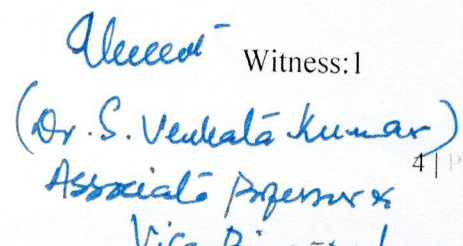 Witness:1
(Dr. S. Venkata Kumar)
4 |
Associate Professor &
Vice Principal